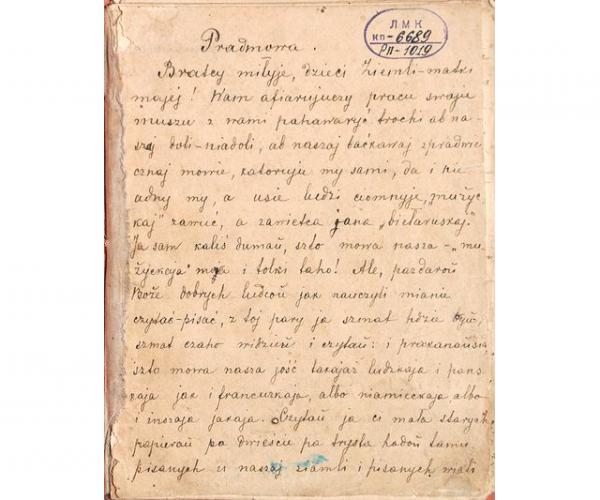 ЛМК
кп-6689
Рп-1019
Pradmowa.
Bratcy miłyje, dzieci Ziemli-matki
majej! Wam afiarujuczy pracu swaju
muszu z wami pahawaryć trochi ab na-
szaj doli-niadoli, ab naszaj baćkawaj spradwie-
cznaj mowie, katoruju my sami, da i nie
adny my, a usie ludzi ciomnyje, "mużyc-
kaj" zawuć, a zawietca jana "biełaruskaj".
Ja sam kaliś dumaŭ, szto mowa nasza - "mu-
życkaja" mowa i tolki taho! Ale, pazdaroŭ
Boże dobrych ludcoŭ jak nauczyli mianie
czytać-pisać, z toj pary ja szmat hdzie byŭ,
szmat czaho widzieŭ i czytaŭ: i prakanaŭsia,
szto mowa nasza jość takajaż ludzkaja i pans-
kaja jak i francuzkaja, albo niamieckaja albo
i inszaja jakaja. Czytaŭ ja ci mała starych
papieraŭ pa dwieście pa trysta hadoŭ tamu
pisanych u naszaj ziamli i pisanych